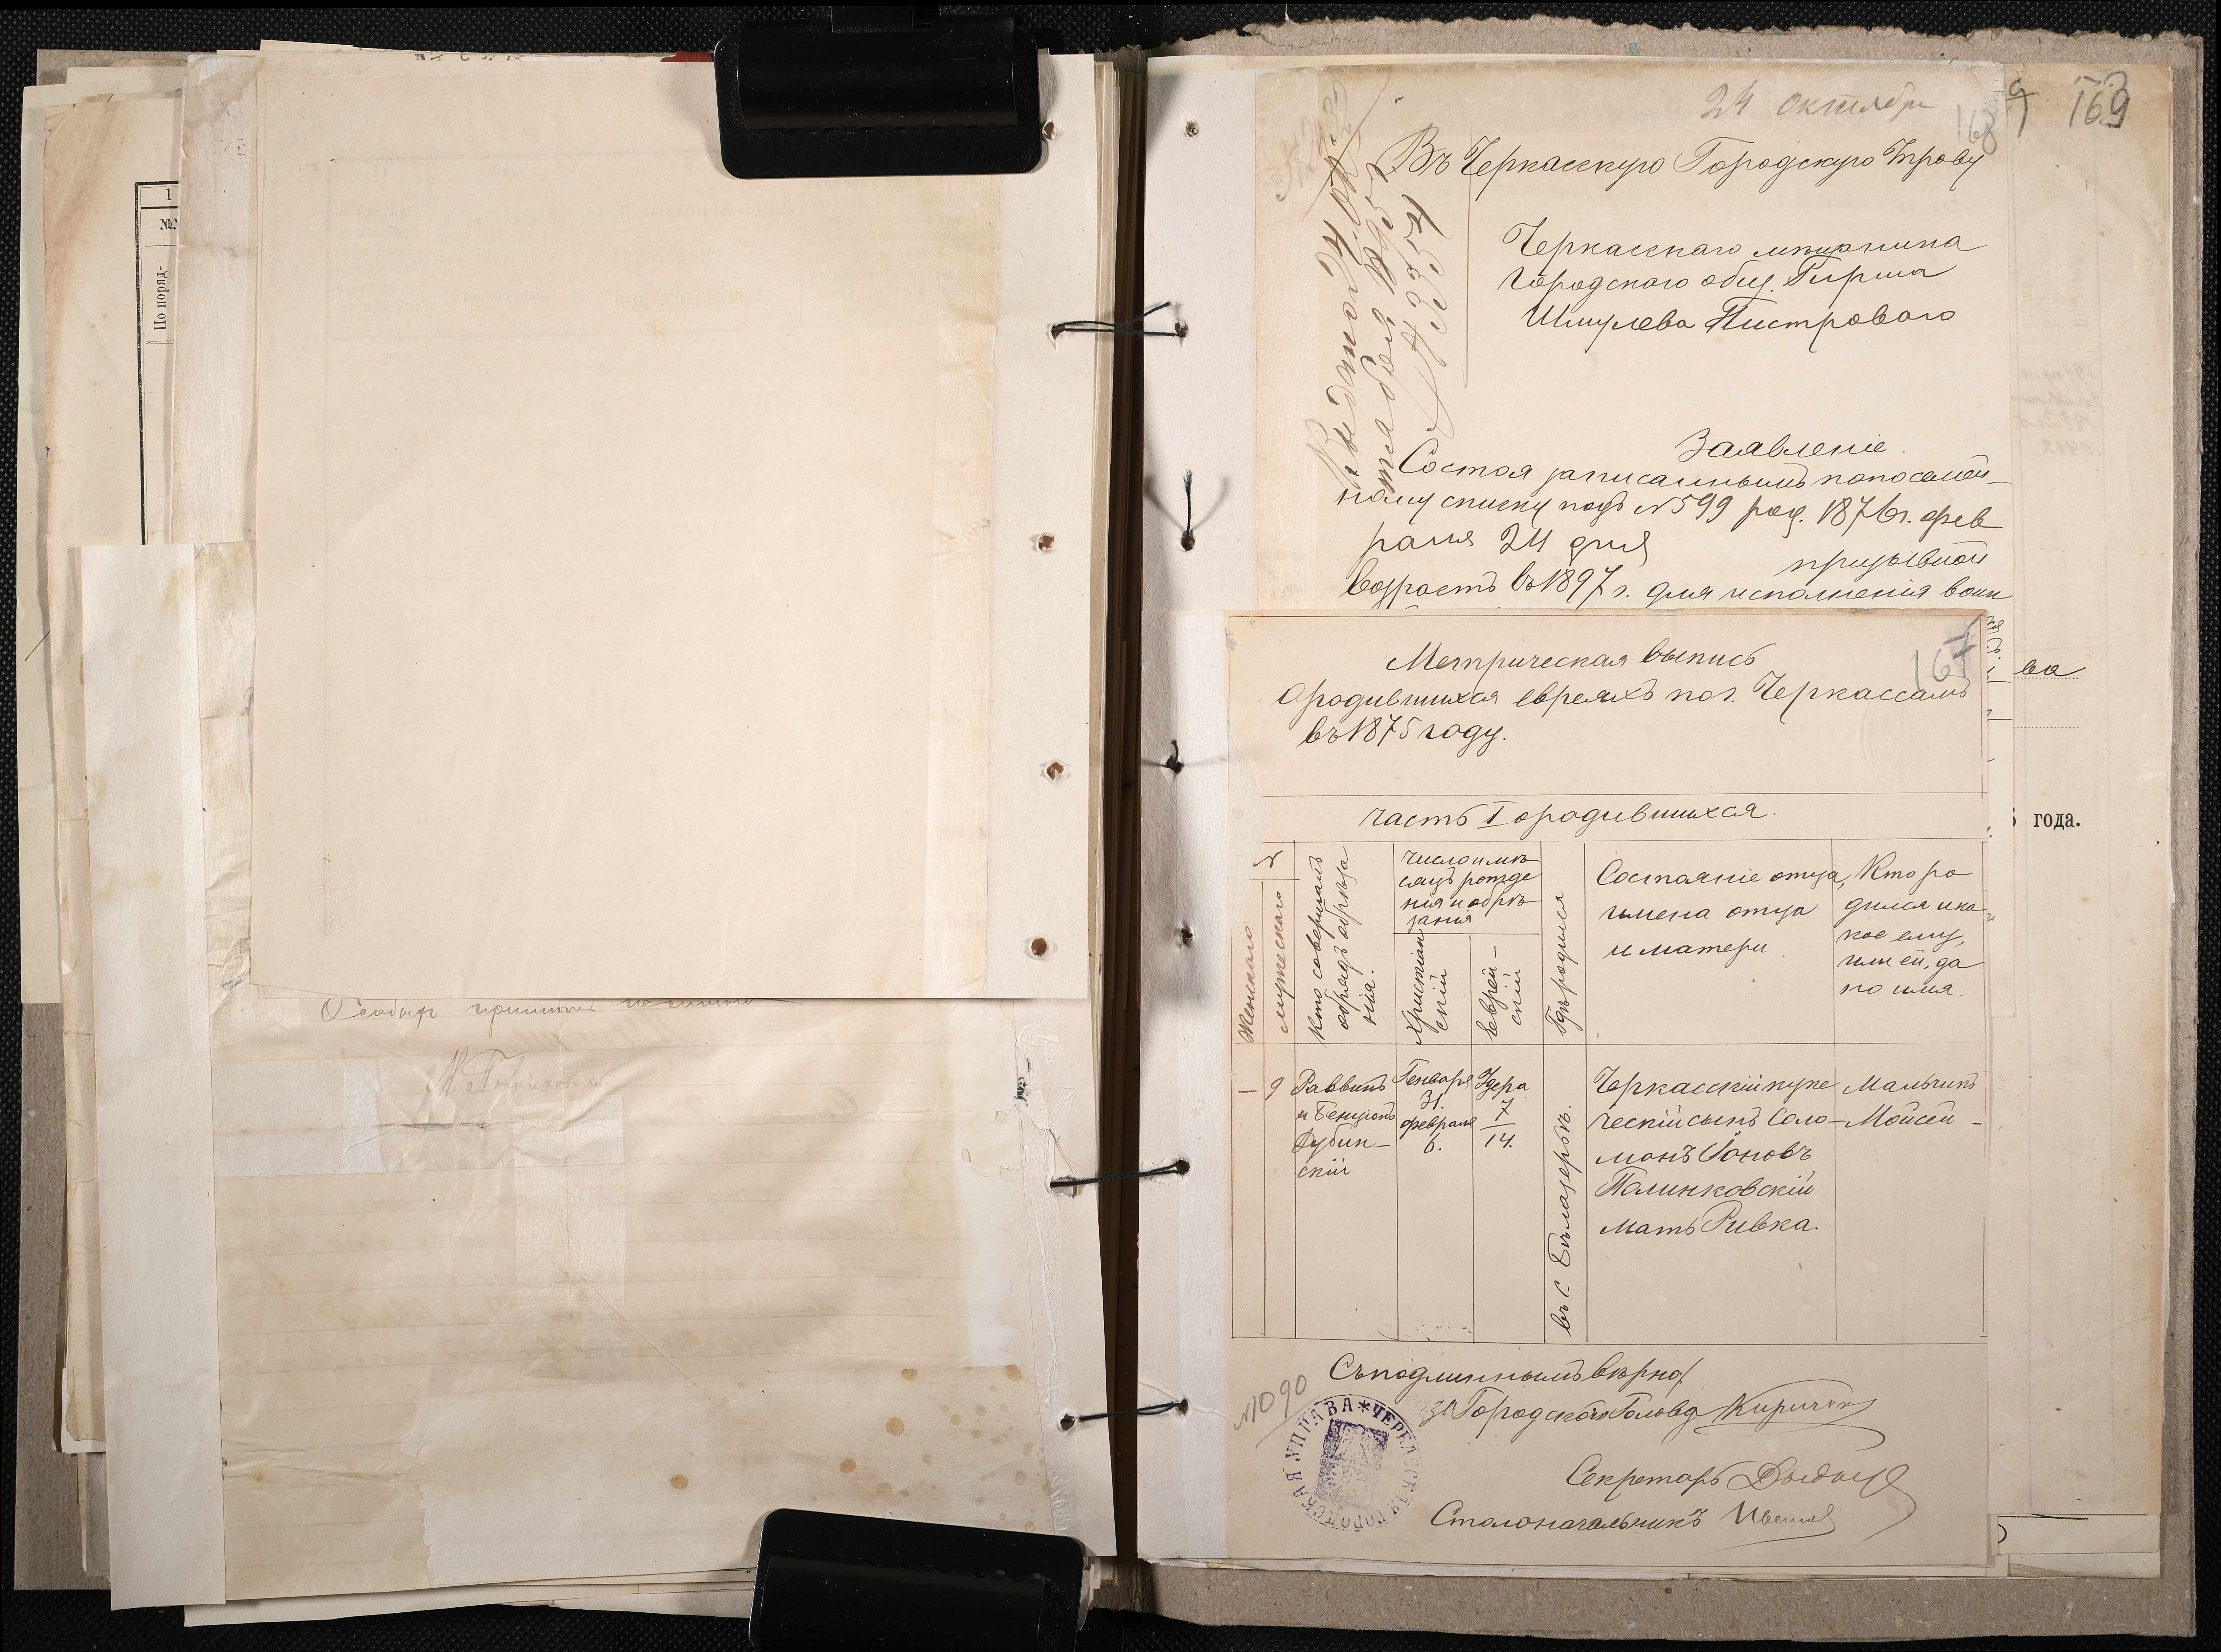 1
№№
По поряд-
24 октября
168
169
Въ Черкасскую Городскую Управу
Черкасскаго мѣщанина
Городского общ. Гирша
Шмулева Пистроваго
Заявленіе
Состоя записаннымъ по посемей-
ному списку подъ №599 род. 1876 г. фев
раля 24 дня
призывной
возрастъ въ 1897 г. для исполненія воин
167
Метрическая выпись
о родившихся евреяхъ по г. Черкассамъ
въ 1875 году.
ва
года.
Часть I о родившихся.
№
Женскаго
мужескаго
Кто совершалъ
обрядъ обрѣза
нія.
Число и мѣ
сяцъ рожде
нія и обрѣ
занія
Христіан
скій
Еврей-
скій
Гдѣ родился
Состояніе отца,
имена отца
и матери.
Кто ро
дился и ка
кое ему,
или ей, да
но имя.
— 9
Раввинъ
и Бенціонъ
Дубин-
скій
Генваря
31.
февраля
6.
Адера
7
14.
въ с. Бѣлазерьѣ.
Черкасскій купе
ческій сынъ Соло-
монъ Іоновъ
Полинковскій
мать Ривка.
Мальчикъ
Мойсей -
Съ подлиннымъ вѣрно:
№1090
за Городского Голова Киричен
Секретарь
Столоначальникъ
ЧЕРКАССКАЯ ГОРОДСКАЯ УПРАВА